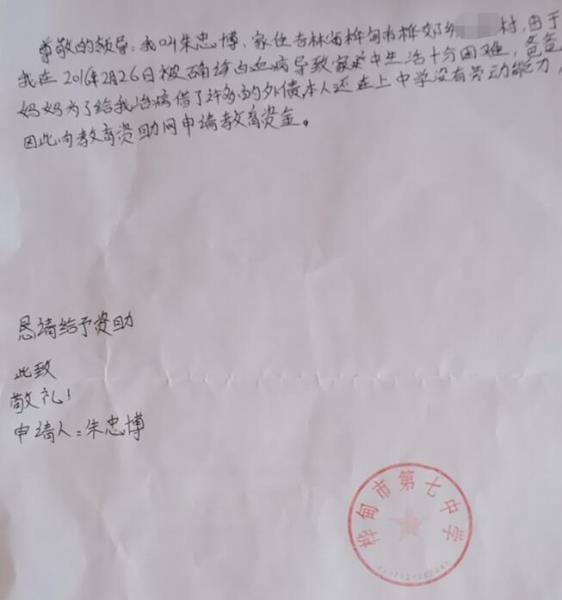 尊敬的领导：我叫朱忠博、家住吉林省桦甸市桦郊乡 村，由于
我在2016年2月26日被确诊白血病导致家庭中生活十分困难，爸爸
妈妈为了给我治病借了许多的外债本人还在上中学没有劳动能力，
因此向教育资助网申请教育资金。
恳请给予资助
此致
敬礼！
申请人：朱忠博
桦甸市第七中学